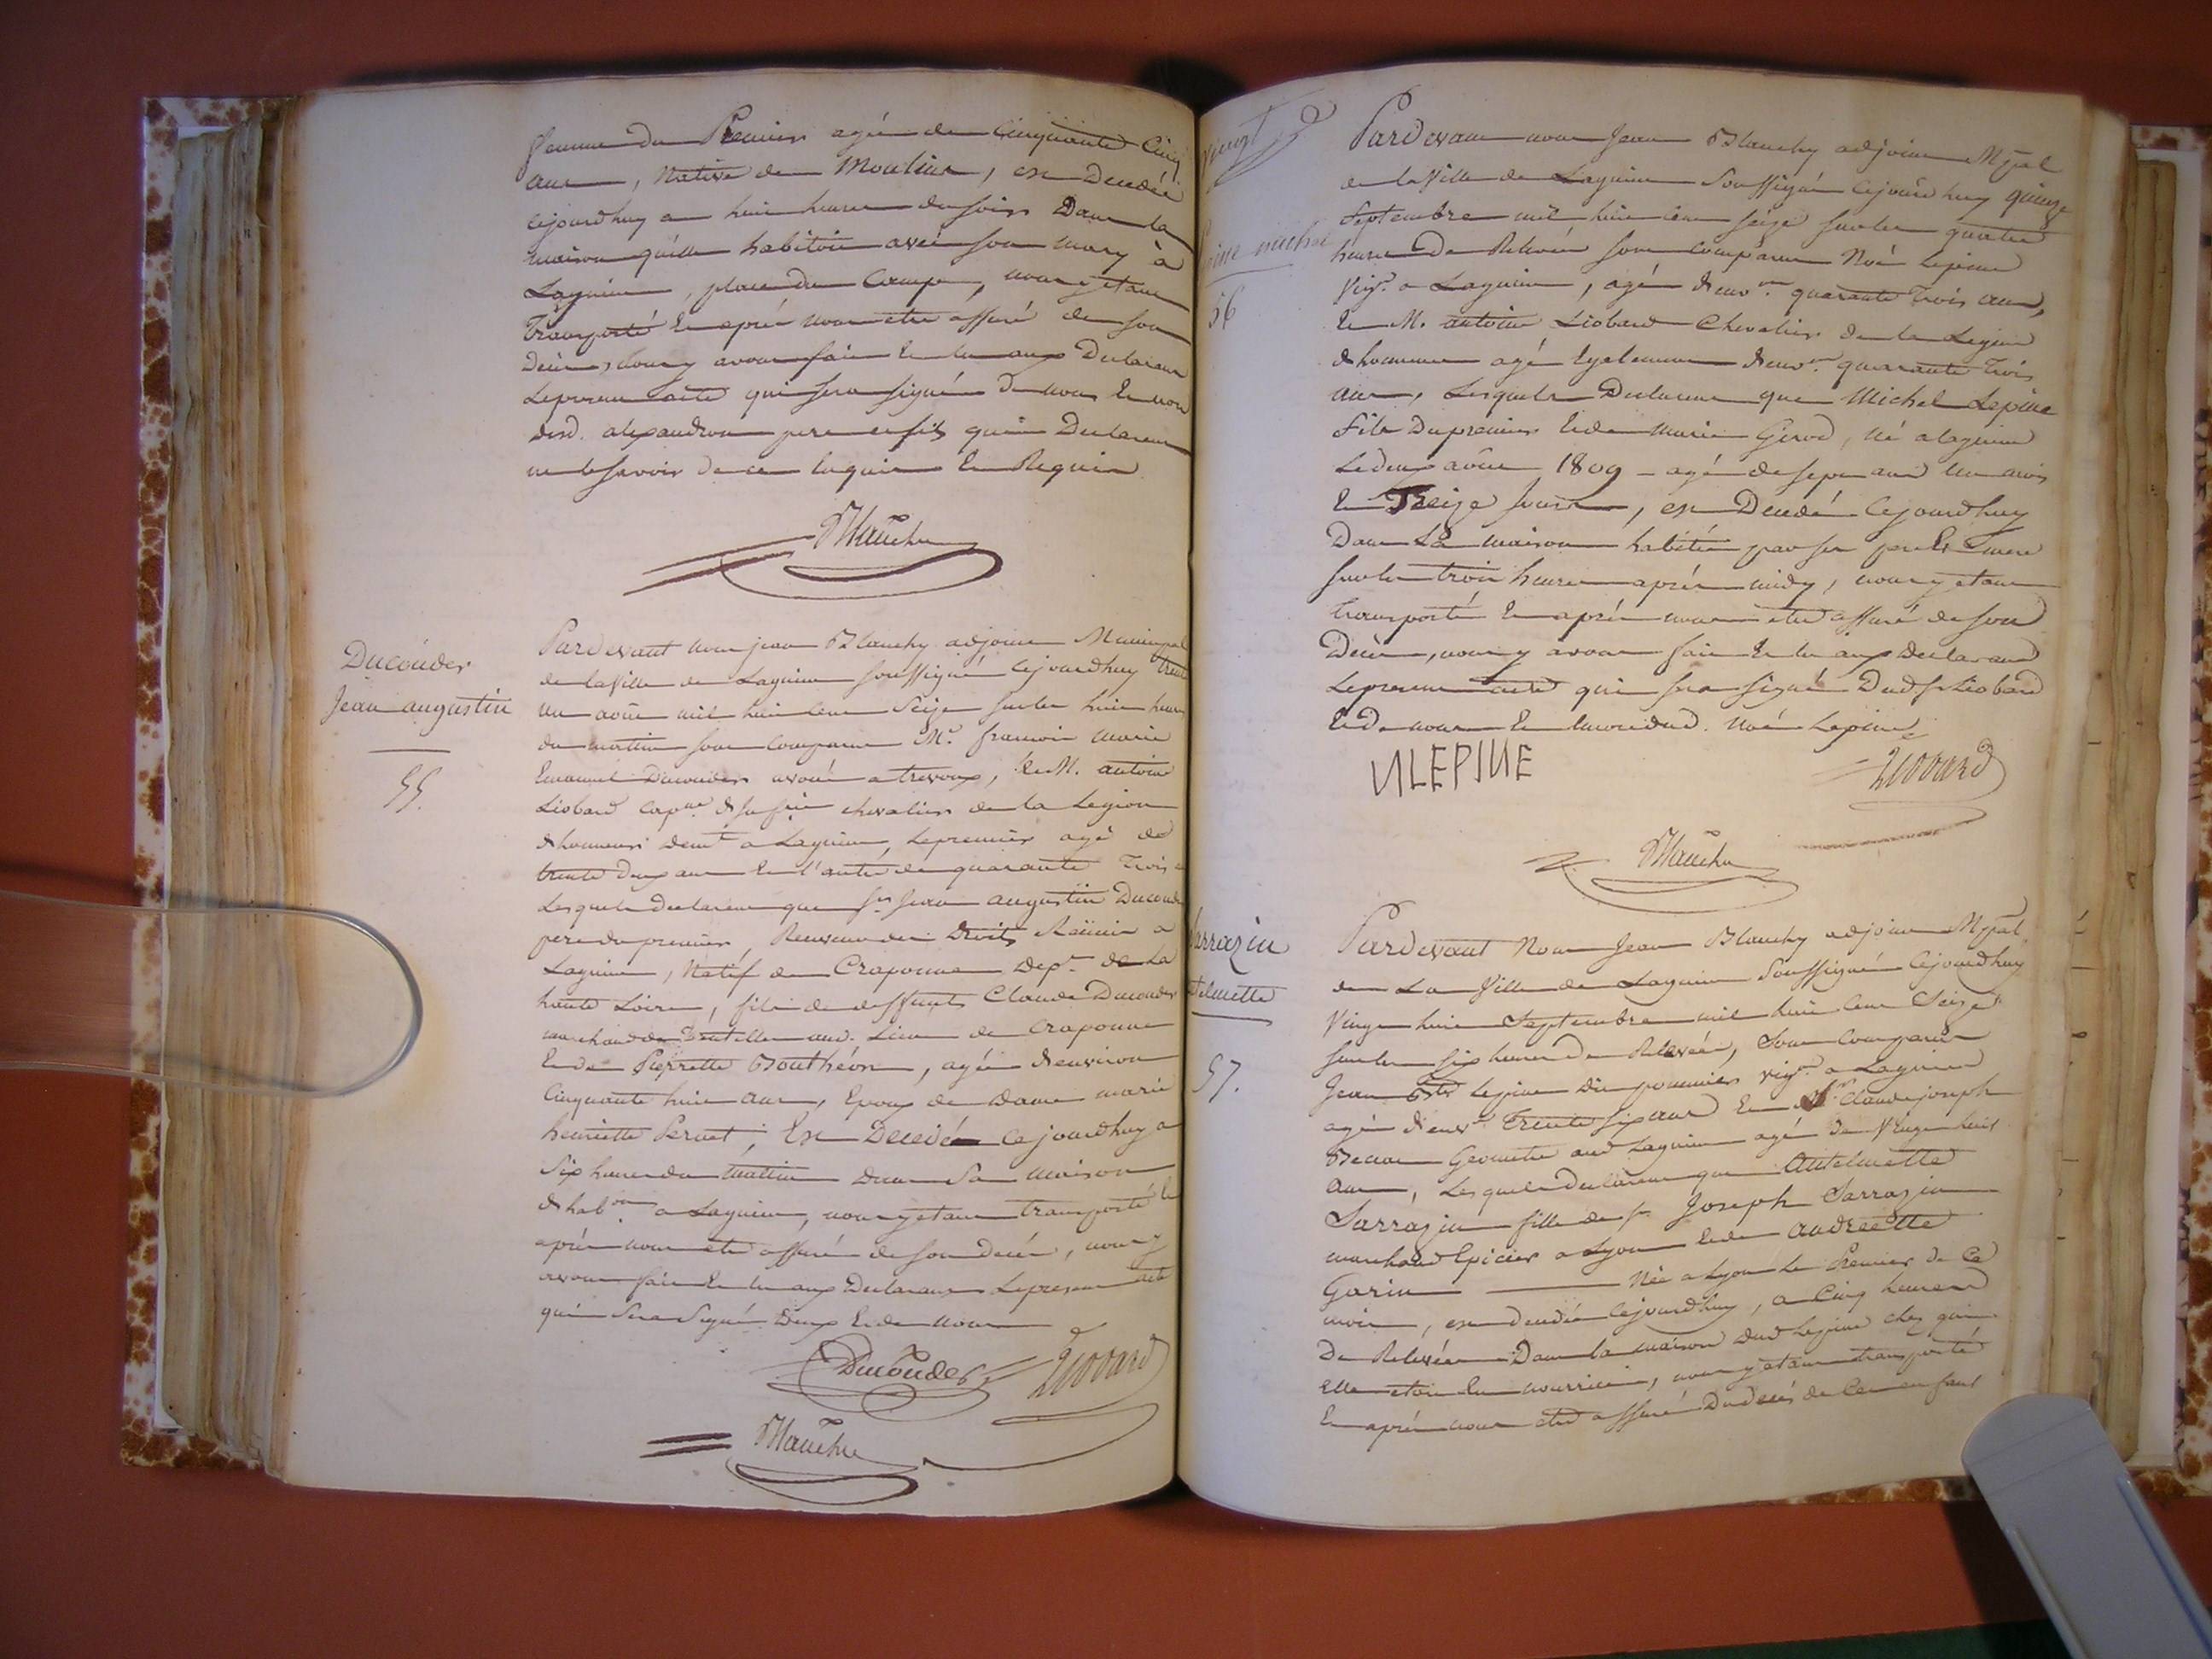 femme du Premier agée de Cinquante Cinq
ans, Native de Moulins, est Decedée
cejourdhuy a huit heures du soir Dans la
maison qu'elle habitoit avec son mary à
Lagnieu, place du Camp, nous y etant
Transporté et après nous etre assuré de son
Décès, nous y avons fait et lu aux Declarans
Lepresent acte qui sera signé de nous et non
desd. alexandron pere et fils qui ont Declaré
ne le savoir de ce enquis et Requis
Blanchy
Ducoudes
Jean augustin
55.
Pardevant nous jean Blanchy adjoint Municipal
de la Ville de Lagnieu soussigné Cejourdhuy trente
un août mil huit cent Seize sur les huit heures
du matin sont Comparus Mr. francois marie
Emanuel Ducoudes avoué a trevoux, & M. antoine
Liobard Capne. d'Inf.rie chevalier de la Legion
d'honneur demt a Lagnieu, Lepremier agé de
trente deux ans et l'autre de quarante Trois
Lesquels declarent que Sr Jean augustin Ducoudes
pere du premier, Receveur des Droits Réunis a
Lagnieu, Natif de Craponne Dept. de La
haute Loire, fils de deffunts Claude Ducoudes
marchand de Dentelles aud. Lieu de Craponne
et de Pierrette Bouthéon, agé d'environ
Cinquante huit ans, Epoux de Dame marie
henriette Pernet; Est Decedé Cejourdhuy a
Six heures du matin dans Sa maison
d'hab.on a Lagnieu, nous y etant transporté et
après nous etre assuré de son Decés, nous y
avons fait et lu aux Declarans Lepresent acte
qui Sera Signé D'eux et de Nous
Ducoudes Liobard
Blanchy
Vingt
Lepine michel
56
Pardevant nous Jean Blanchy adjoint Mpal
de la Ville de Lagnieu Soussigné Cejourdhuy quinze
Septembre mil huit cent seize sur les quatre
heures De Relevée sont comparus Noé Lepine
Vigr. a Lagnieu, agé d'envon. quarante Trois ans,
et M. antoine Liobard Chevalier de la Legion
d'honneur agé Egalement d'envon. quarante Trois
ans, Lesquels Declarent que Michel Lepine
fils Du premier et de Marie Gerod, né a Lagnieu
Le deux août 1809 - agé de sept ans un mois
et Treize jours, est Decedé Cejourdhuy
Dans La maison habitée par ses pere et mere
sur les trois heures après midy, nous y etant
transporté et après nous etre assuré de son
Décès, nous y avons fait et lu aux Declarans
Lepresent acte qui sera signé Dud Sr Liobard
et de nous et dud. Noé Lepine
NLEPINE
Liobard
Blanchy
Sarrazin
Antelmette
57.
Pardevant Nous Jean Blanchy adjoint Mpal.
de La Ville de Lagnieu Soussigné Cejourdhuy
Vingt huit Septembre mil huit Cent Seize
sur les six heures De Relevée, Sont Comparus
Jean Bte Lepine Dit pommier vigr. a Lagnieu
agé d'envn Trente six ans et Mr. Claude joseph
Geometre aud Lagnieu agé de Vingt huit
ans, Lesquels declarent que Antelmette
Sarrazin fille de Sr Joseph Sarrazin
marchand Epicier a Lyon et de Andréette
Garin Née a Lyon Le Premier de Ce
mois, est decedée Cejourdhuy, a Cinq heures
De Relevée Dans la maison dud Lepine chez qui
elle etoit en nourrice, nous y etant transporté
et après nous etre assuré Du decés de Cet enfant